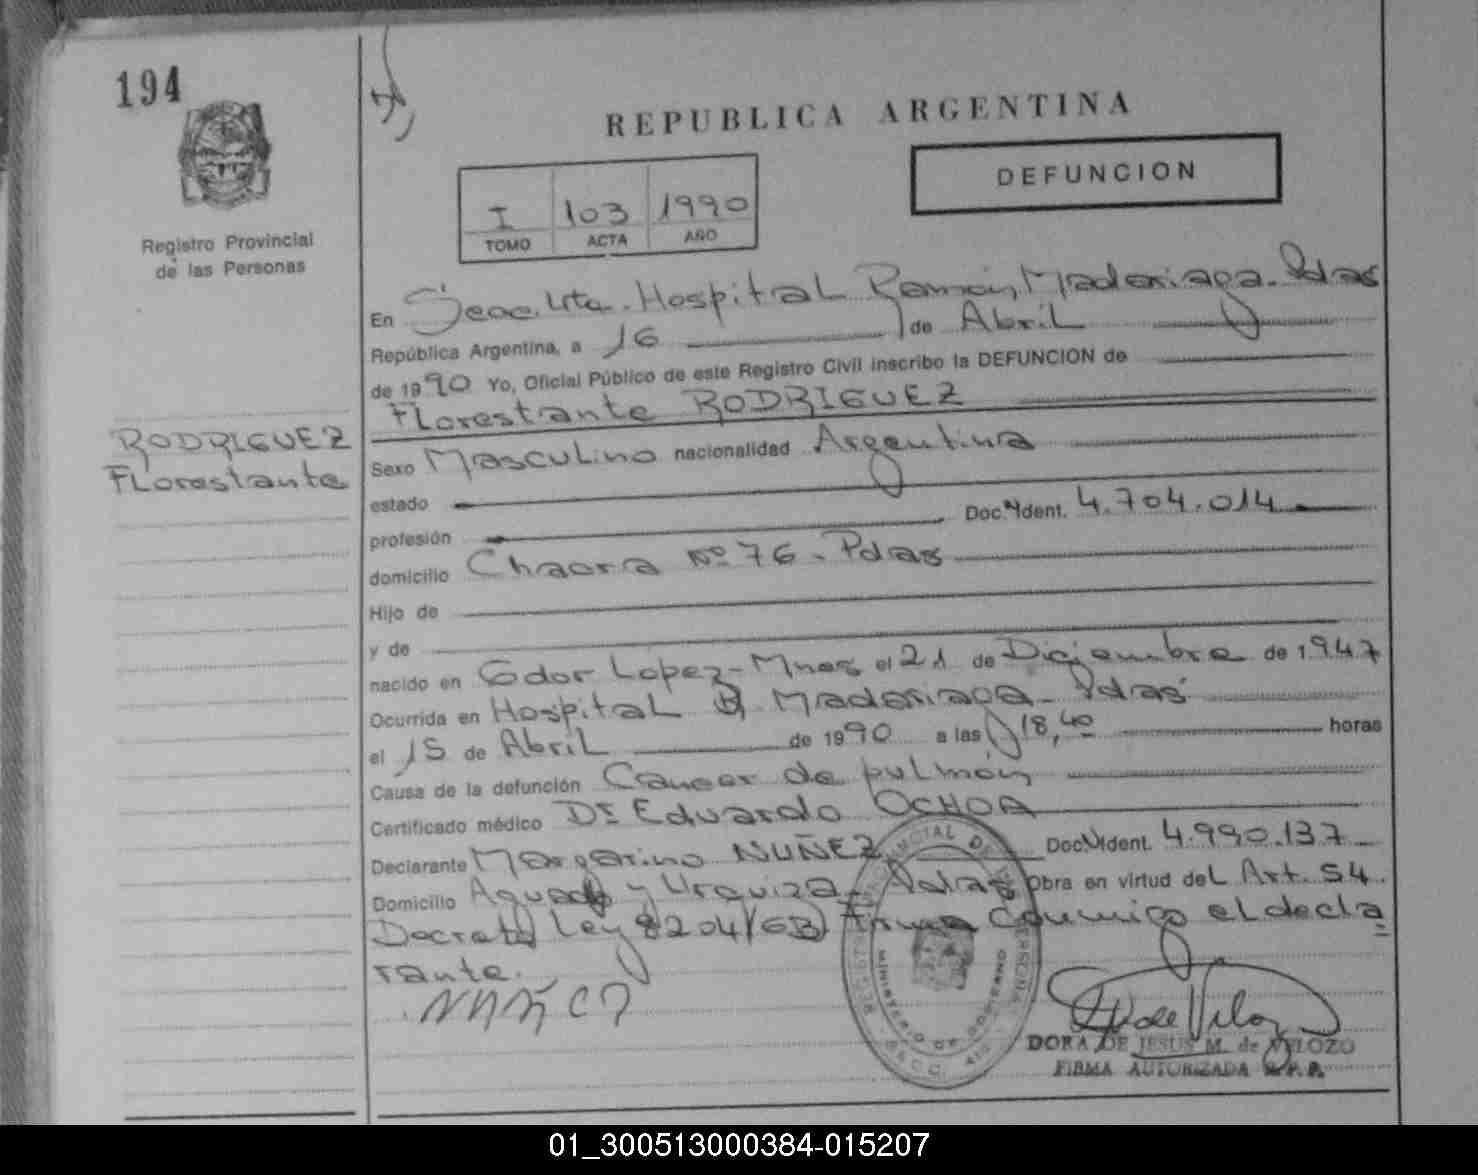 194
REPUBLICA ARGENTINA
DEFUNCION
I 103 1990
TOMO ACTA AÑO
Registro Provincial
de las Personas
En Secc. 4ta. Hospital Ramón Madariaga. Pdas
República Argentina, a 16 de Abril
de 1990 Yo, Oficial Público de este Registro Civil inscribo la DEFUNCION de
Florestante RODRIGUEZ
RODRIGUEZ
Florestante
Sexo Masculino nacionalidad Argentina
estado
profesión Doc. Ident. 4.704.014
domicilio Chacra Nº 76 - Pdas
Hijo de
y de
nacido en Gdor Lopez - Mnes el 21 de Diciembre de 1947
Ocurrida en Hospital R Madariaga - Pdas
el 15 de Abril de 1990 a las 18,40 horas
Causa de la defunción Cancer de pulmón
Certificado médico Dr Eduardo OCHOA
Declarante Margarino NUÑEZ Doc. Ident. 4.990.137
Domicilio Aguado y Urquiza - Pdas Obra en virtud del Art. 54.
Decreto Ley 8204/63 Firma conmigo el decla
rante.
REGISTRO PROVINCIAL DE LAS PERSONAS
MINISTERIO DE GOBIERNO
DORA DE JESUS M. de VELOZO
FIRMA AUTORIZADA R.P.P.
01_300513000384-015207